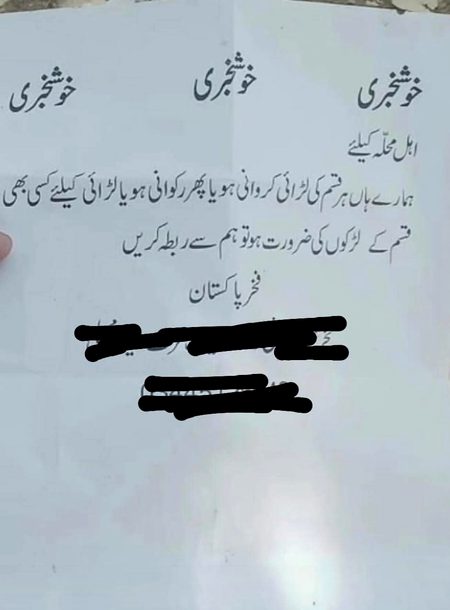 خوشخبری خوشخبری خوشخبری
اہل محلّہ کیلئے
ہمارے ہاں ہر قسم کی لڑائی کروانی ہو یا پھر رکوانی ہو یا لڑائی کیلئے کسی بھی
قسم کے لڑکوں کی ضرورت ہو تو ہم سے ربطہ کریں
فخر پاکستان